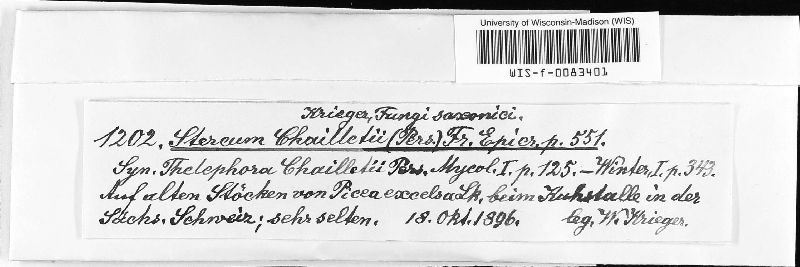 University of Wisconsin-Madison (WIS)
WIS-f-0083401
Krieger, Fungi saxonici.
1202. Stereum Chailletii (Pers.) Fr. Epicr. p. 551.
Syn. Thelephora Chailletii Pers. Mycol. I. p. 125. – Winter, I. p. 343.
Auf alten Stöcken von Picea excelsa Lk. beim Kuhstalle in der
Sächs. Schweiz; sehr selten. 18. Okt. 1896. leg. W. Krieger.